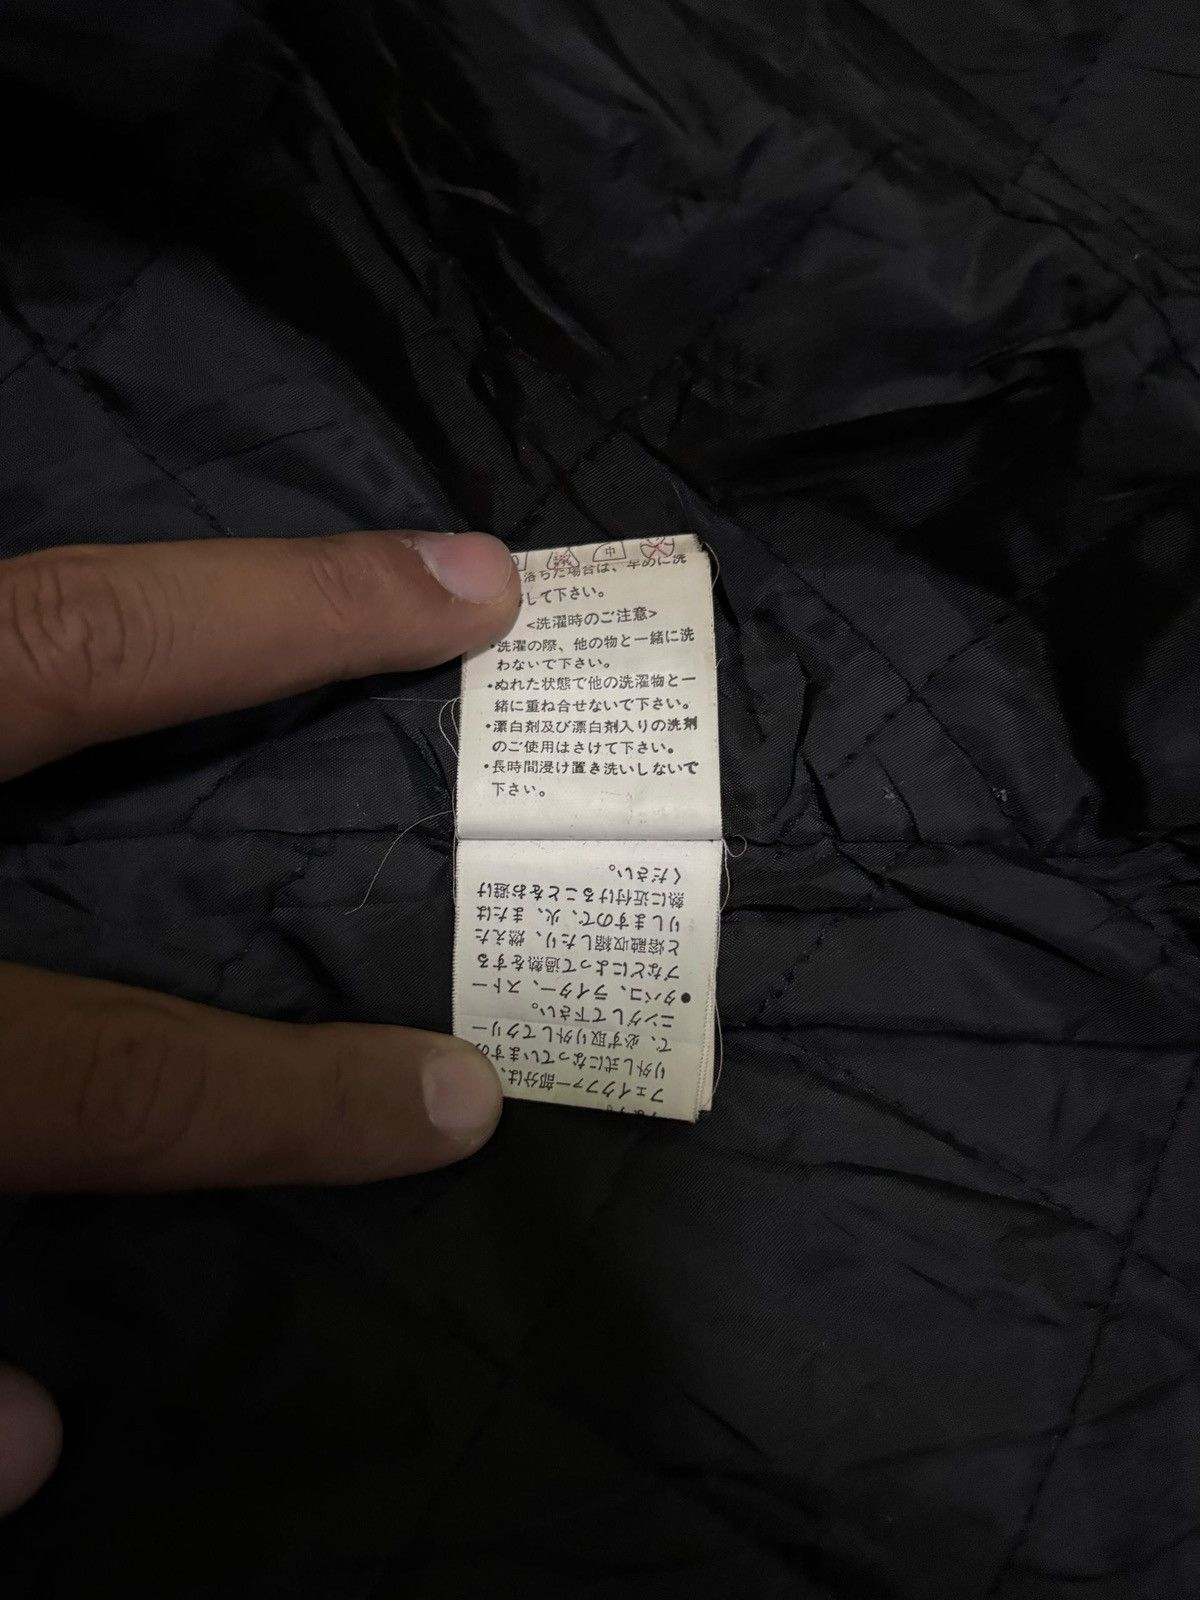 中
落ちた場合は、早めに洗
して下さい。
<洗濯時のご注意>
・洗濯の際、他の物と一緒に洗
わないで下さい。
・ぬれた状態で他の洗濯物と一
緒に重ね合せないで下さい。
・漂白剤及び漂白剤入りの洗剤
のご使用はさけて下さい。
・長時間浸け置き洗いしないで
下さい。
フェイクファー部分は、
り外し式になっていますの
で、必ず取り外してクリー
ニングして下さい。
●タバコ、ライター、ストー
ブなどによって過熱をする
と熔融収縮したり、燃えた
りしますので、火、または
熱に近付けることをお避け
ください。